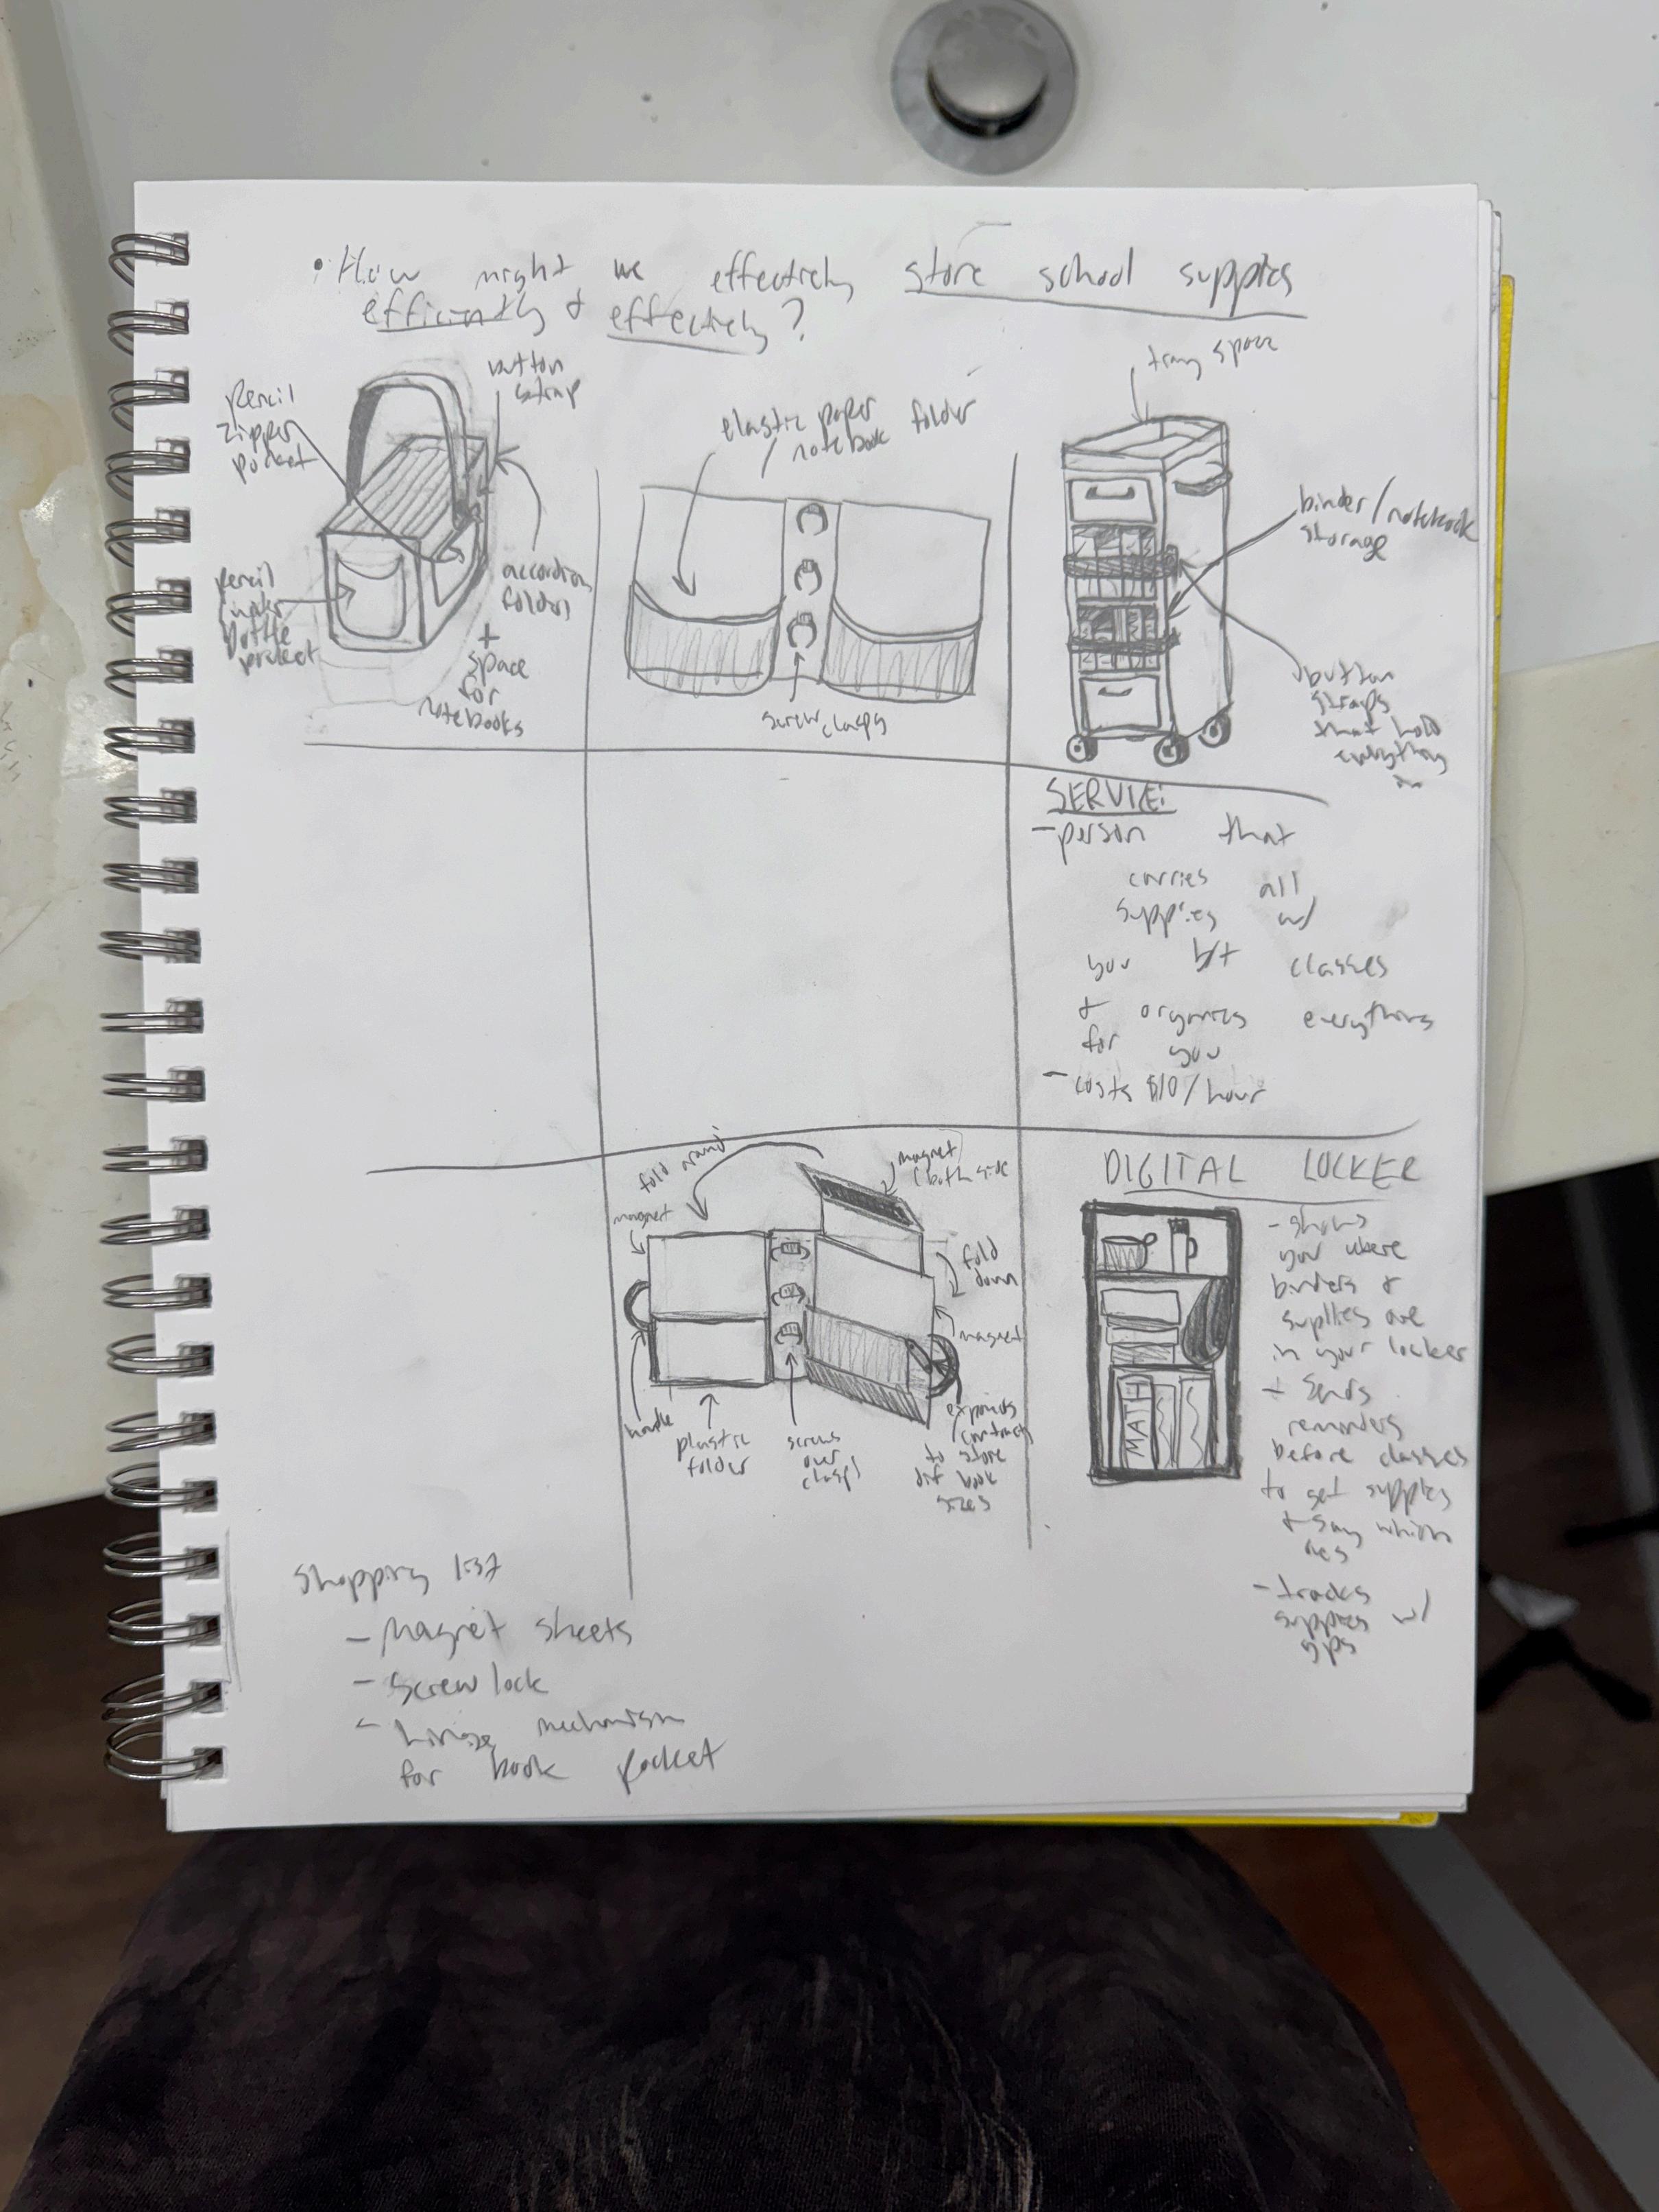 • How might we effectively store school supplies
efficiently & effectively?
Pencil
zipper
pocket
button
strap
accordion
folders
+
space
for
notebooks
Pencil
/water
bottle
pocket
elastic paper
/ notebook folder
screw clasps
tray space
binder/notebook
storage
button
straps
that hold
everything
in
SERVICE:
- person that
carries all
supplies w/
you b/t classes
& organizes everything
for you
- costs $10/hour
fold around
magnet
(both side
magnet
fold
down
magnet
handle
plastic
folder
screws
over
clasps
expands
/contracts
to store
dif book
sizes
DIGITAL LOCKER
- shows
you where
binders &
supplies are
in your locker
+ sends
reminders
before classes
to get supplies
& say which
ones
- tracks
supplies w/
gps
MATH
Shopping list
- Magnet sheets
- Screw lock
- hinge mechanism
for book pocket